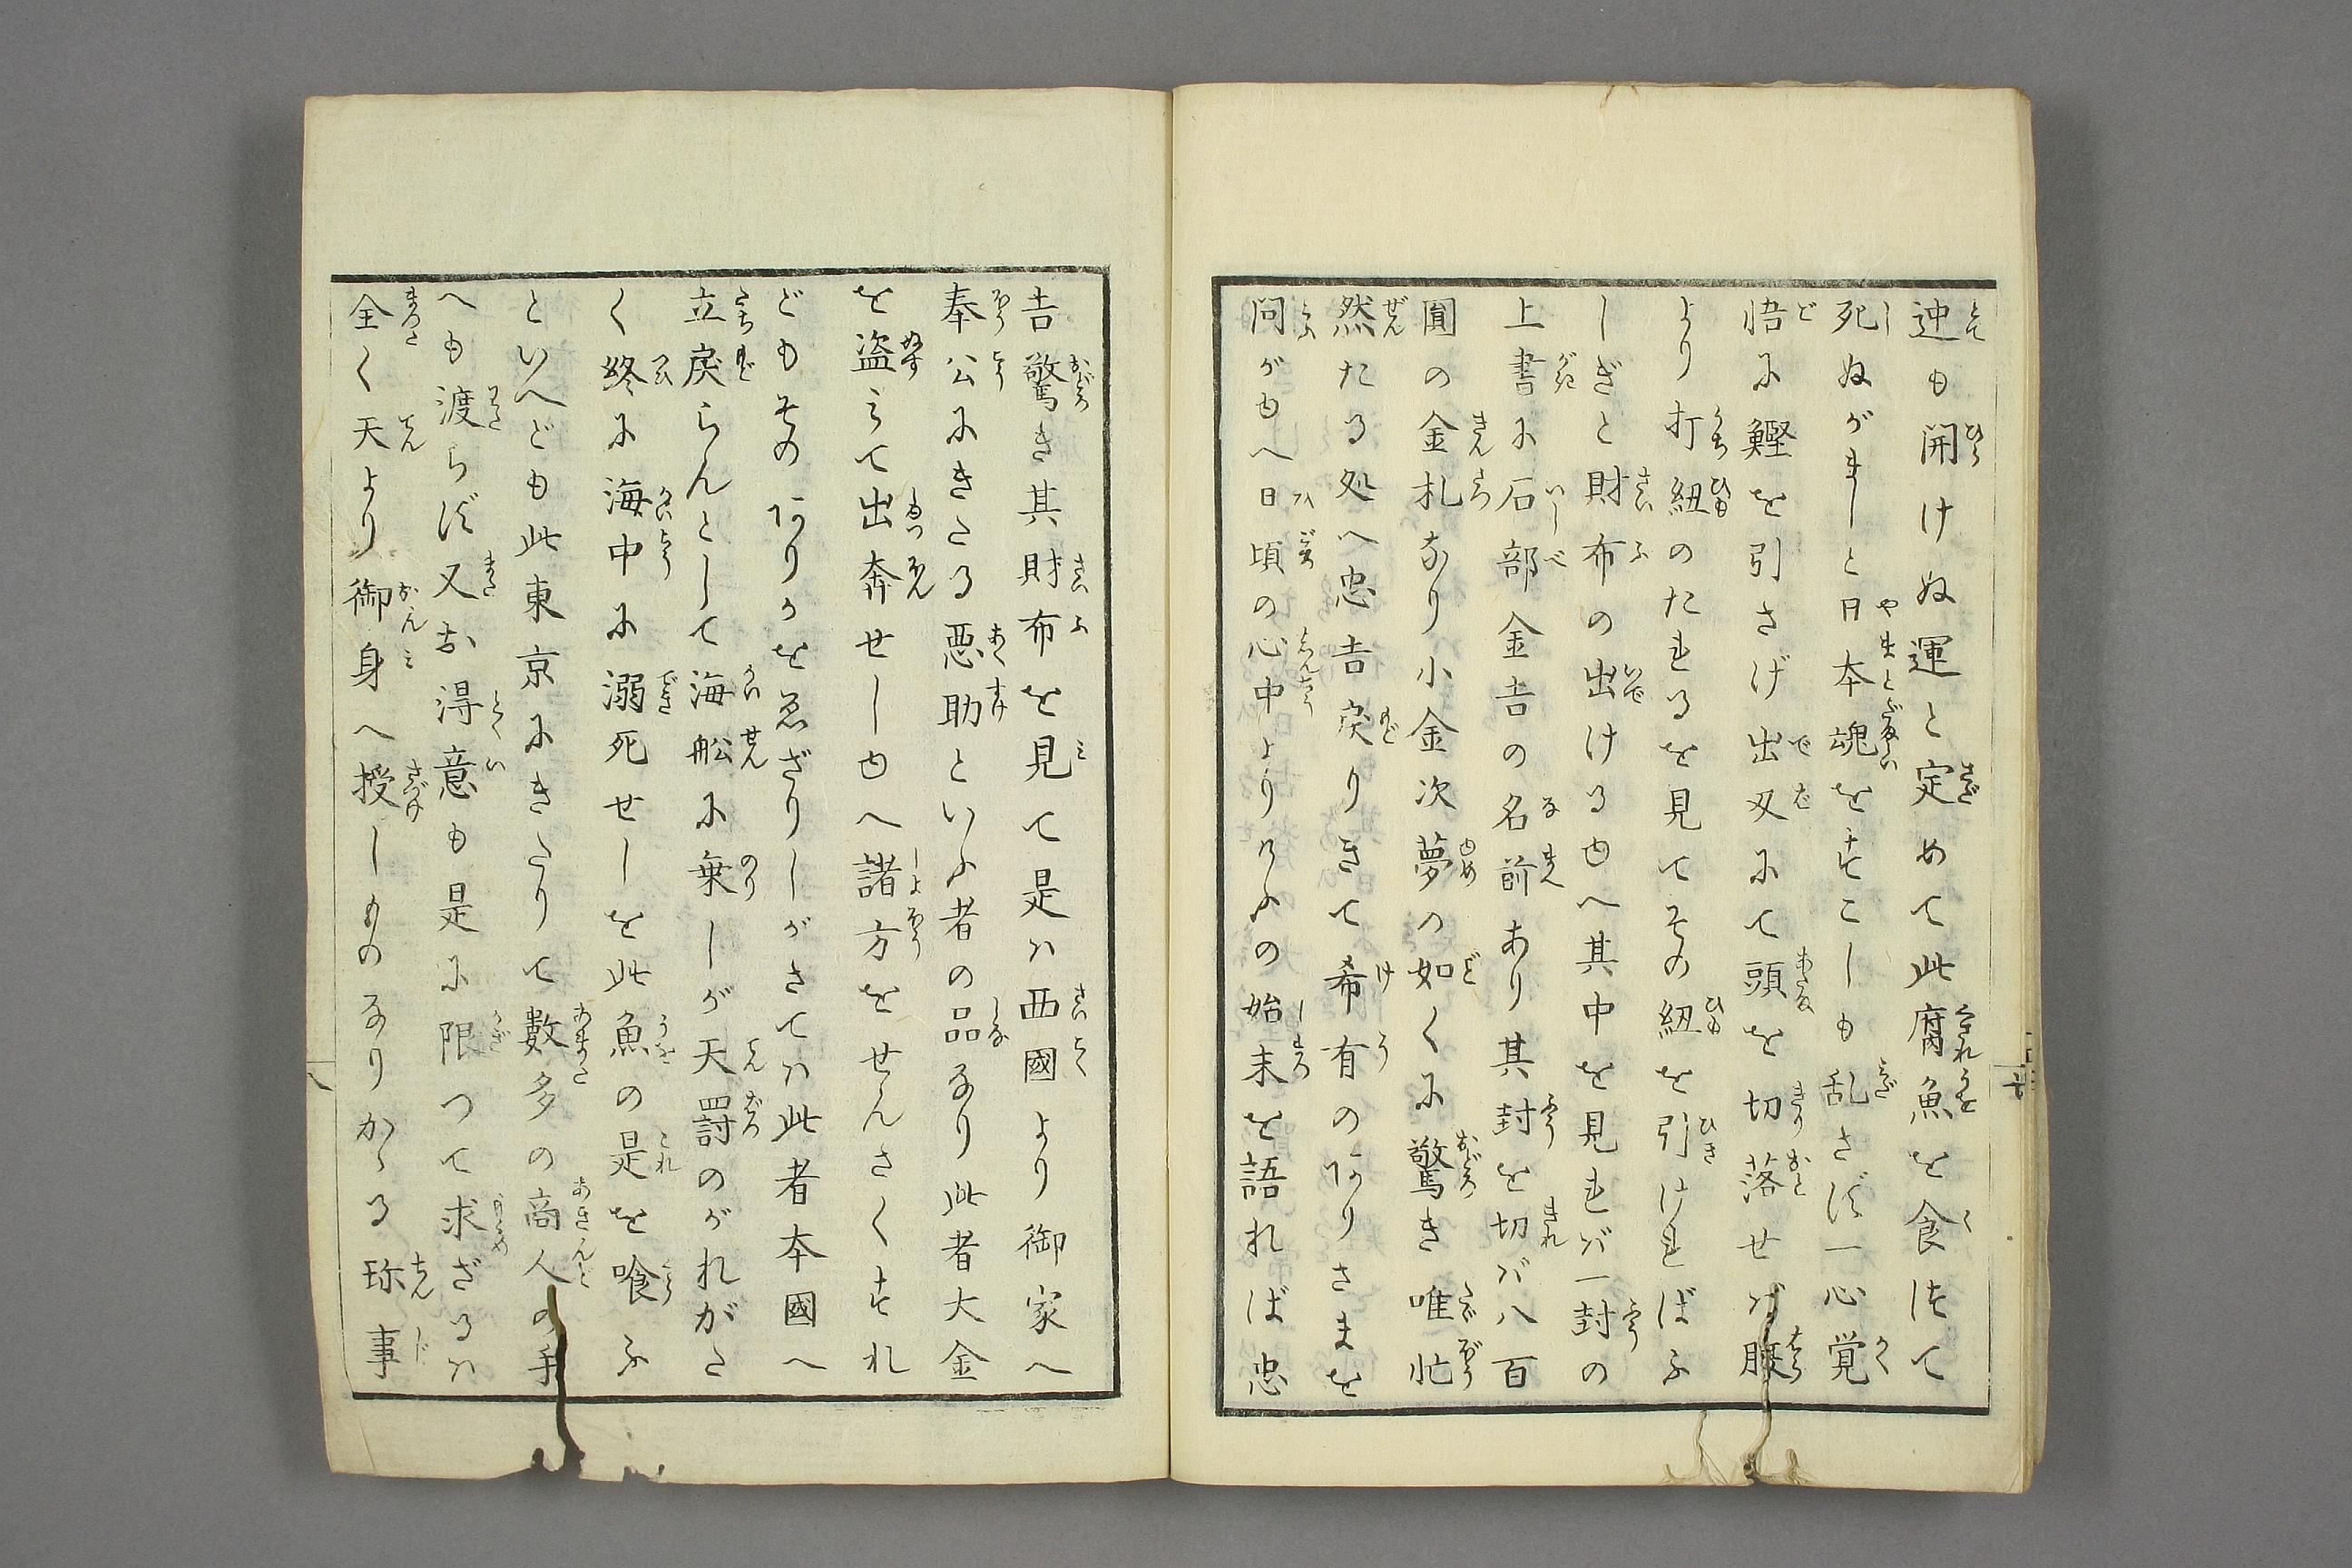 迚も開けぬ運と定めて此腐魚を食はて
死ぬがましと日本魂をすこしも乱さず一心覚
悟に鰹を引さげ出刃にて頭を切落せば腹
より打紐のたれるを見てその紐を引ければふ
しぎと財布の出けるゆへ其中を見れバ一封の
上書に石部金吉の名前あり其封を切バ八百
圓の金札なり小金次夢の如くに驚き唯忙
然たる処へ忠吉戻りきて希有のありさまを
問がゆへ日頃の心中よりけふの始末を語れば忠
吉驚き其財布を見て是ハ西國より御家へ
奉公にきたる悪助といふ者の品なり此者大金
を盗ミて出奔せしゆへ諸方をせんさくすれ
どもそのありかを忍ざりしがさてハ此者本國へ
立戻らんとして海舩に乗しが天罸のがれがた
く終に海中に溺死せしを此魚の是を喰ふ
といへども此東京にきたりて數多の商人の手
へも渡らず又お得意も是に限つて求ざるハ
全く天より御身へ授しものなりかゝる珎事